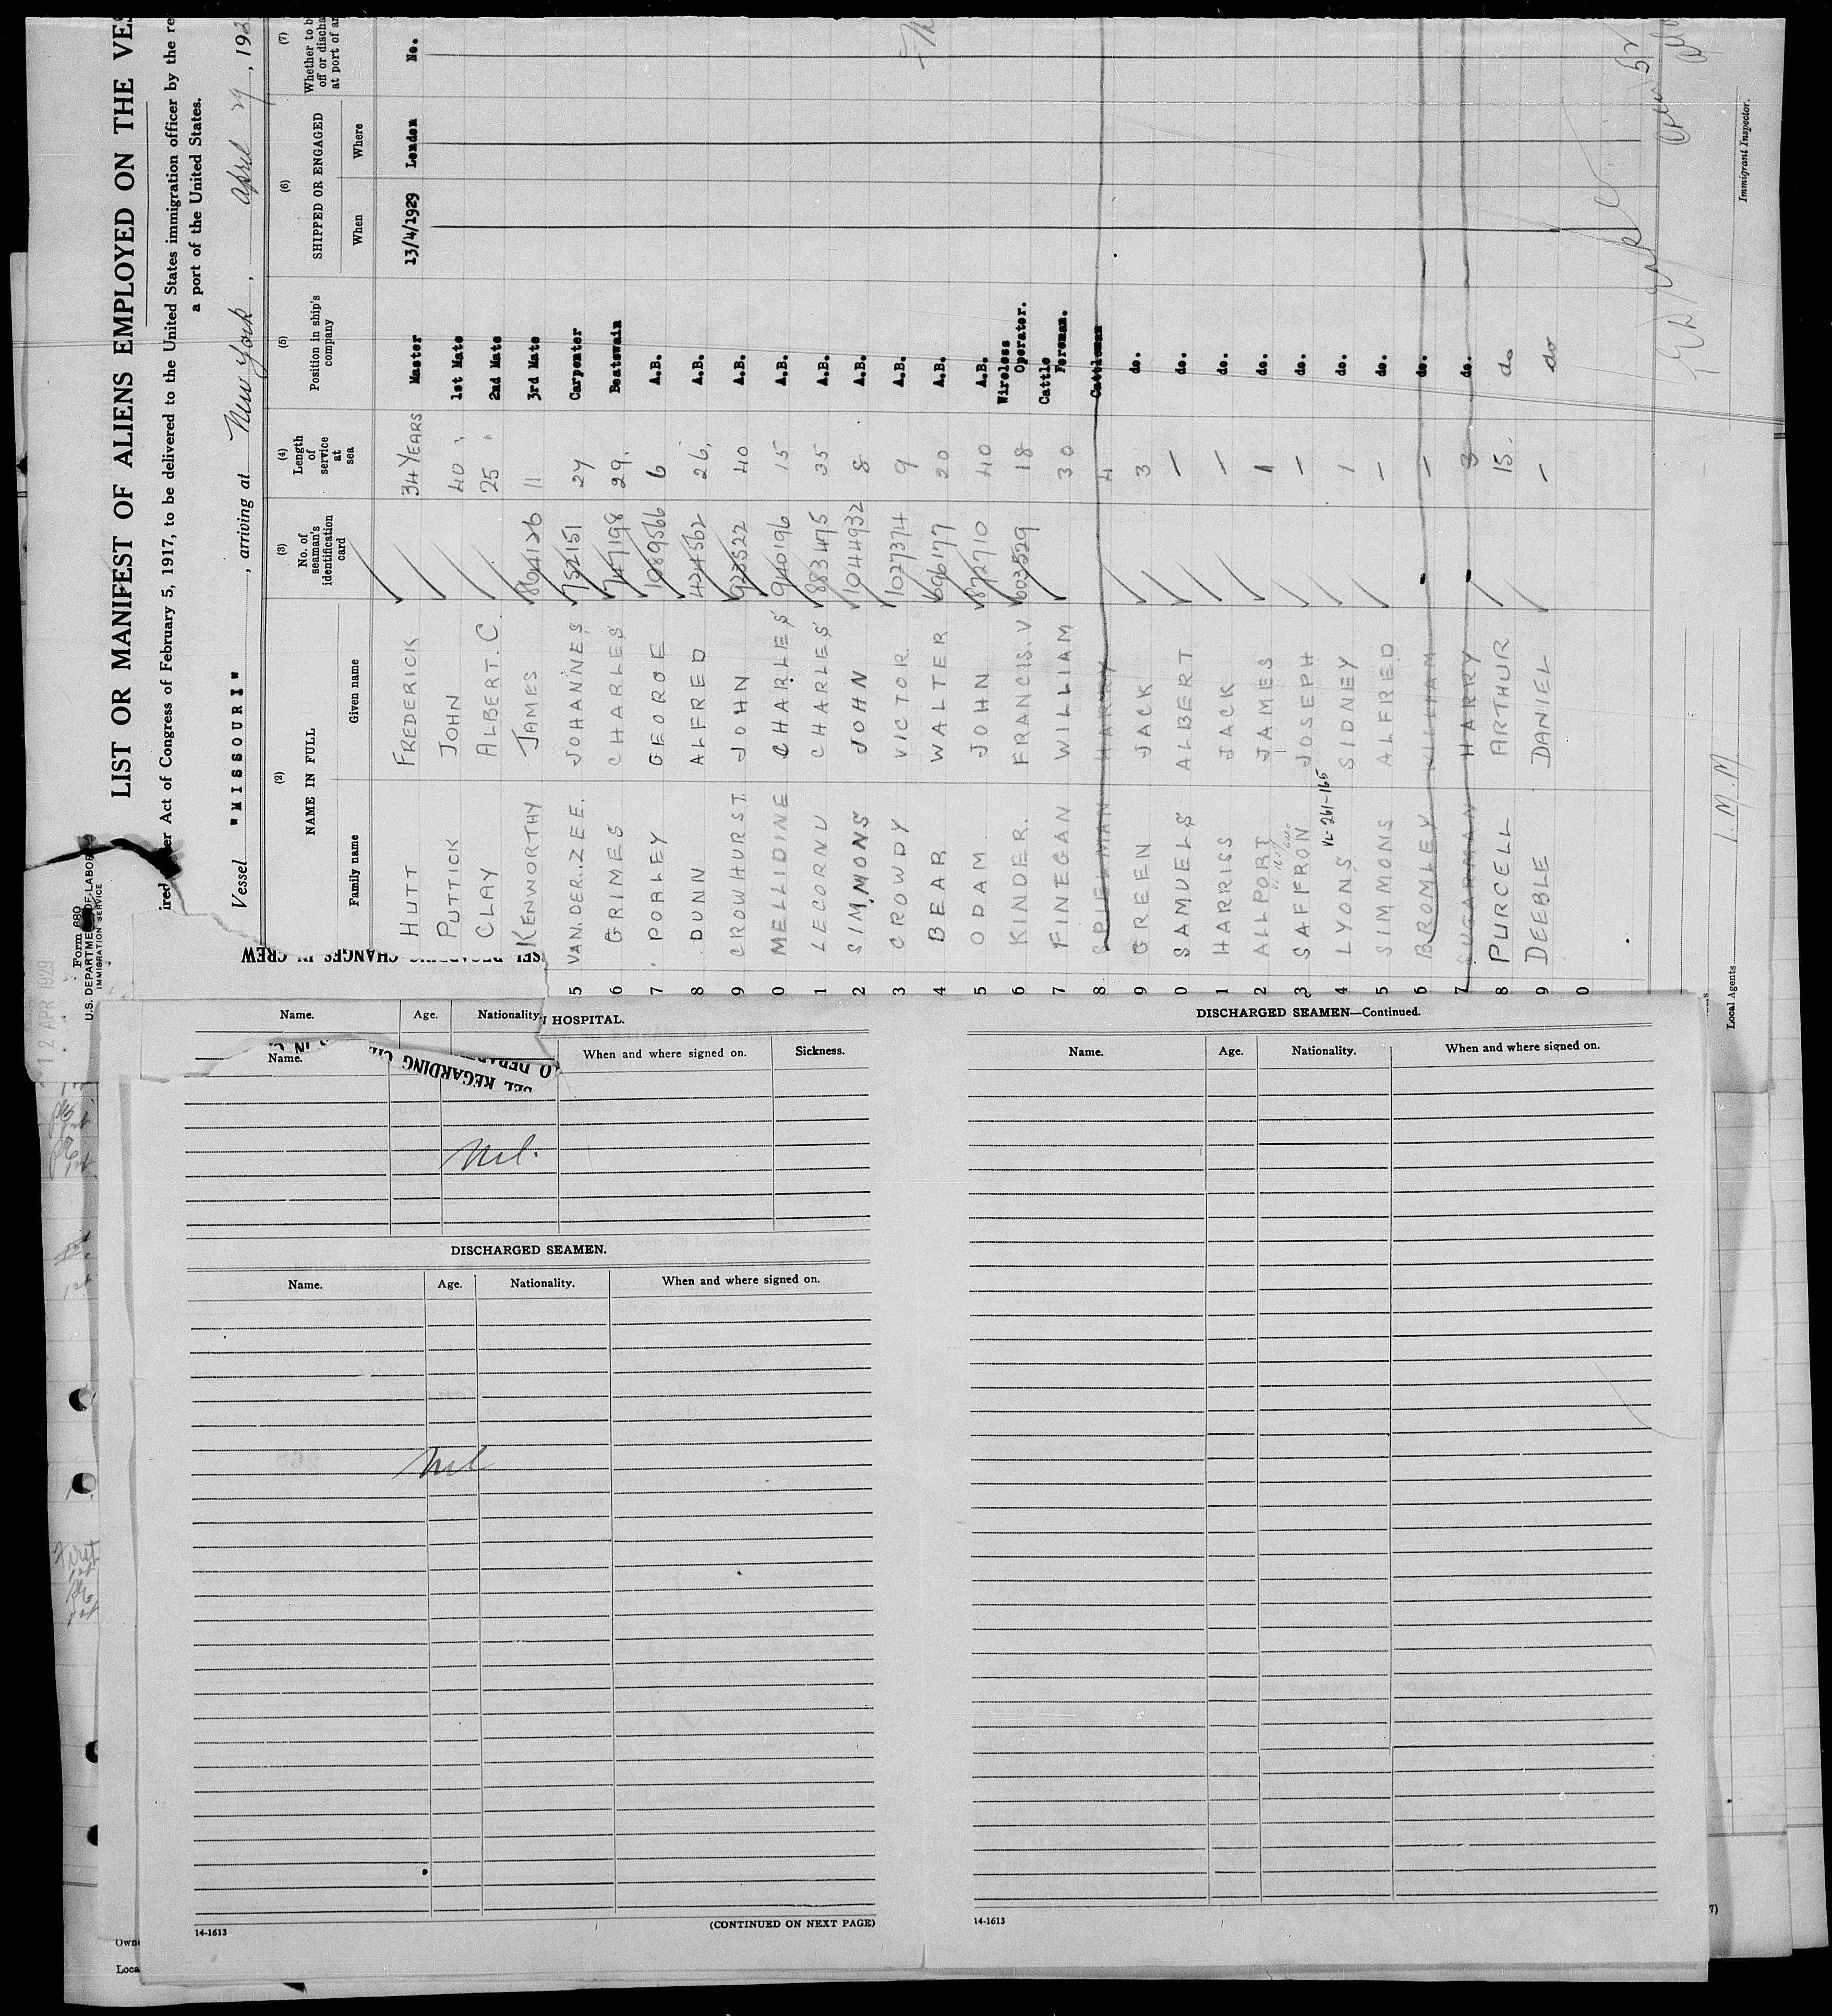 12 APR 1929
Form 680
U.S. DEPARTMENT OF LABOR
IMMIGRATION SERVICE
LIST OR MANIFEST OF ALIENS EMPLOYED ON THE VES
ired er Act of Congress of February 5, 1917, to be delivered to the United States immigration officer by the re
a port of the United States.
Vessel "MISSOURI", arriving at New York, April 29, 192
(2) (3) (4) (5) (6) (7)
NAME IN FULL No. of seaman's identification card Length of service at sea Position in ship's company SHIPPED OR ENGAGED Whether to b
off or discha
at port of ar
Family name Given name When Where
HUTT FREDERICK 34 YEARS Master 13/4/1929 London No.
PUTTICK JOHN 40 1st Mate
CLAY ALBERT. C. 25 2nd Mate
KENWORTHY JAMES 864126 11 3rd Mate
5 VAN. DER. ZEE. JOHANNES 752151 27 Carpenter
6 GRIMES CHARLES 747198 29. Boatswain
7 POALEY GEORGE 1089566 6 A.B.
8 DUNN ALFRED 424562 26. A.B.
9 CROWHURST. JOHN 923522 40 A.B.
0 MELLIDINE CHARLES 940196 15 A.B.
1 LECORNU CHARLES 883475 35 A.B.
2 SIMMONS JOHN 1044932 8 A.B.
3 CROWDY VICTOR. 1027374 9 A.B.
4 BEAR WALTER 696177 20 A.B.
5 ODAM JOHN 872710 40 A.B.
6 KINDER. FRANCIS. V 603529 18 Wireless Operator.
7 FINEGAN WILLIAM 30 Cattle Foreman.
8 SPIELMAN HARRY 4 Cattleman
9 GREEN JACK 3 do.
0 SAMUELS ALBERT - do.
1 HARRISS JACK - do.
2 ALLPORT JAMES 1 do.
3 SAFFRON JOSEPH - do.
VL-261-165
4 LYONS SIDNEY 1 do.
5 SIMMONS ALFRED - do.
6 BROMLEY WILLIAM - do.
7 SUGARMAN HARRY 3 do.
8 PURCELL ARTHUR 15. do
9 DEEBLE DANIEL - do
0
Local Agents I. M. M
Immigrant Inspector.
SEL REGARDING CHANGES IN CREW
Name. Age. Nationality.
N HOSPITAL.
Name. When and where signed on. Sickness.
SEL REGARDING CH
O DEPAR
Nil.
DISCHARGED SEAMEN.
Name. Age. Nationality. When and where signed on.
Nil
14-1613 (CONTINUED ON NEXT PAGE)
DISCHARGED SEAMEN—Continued.
Name. Age. Nationality. When and where signed on.
14-1613
First
Own
Loca
7)